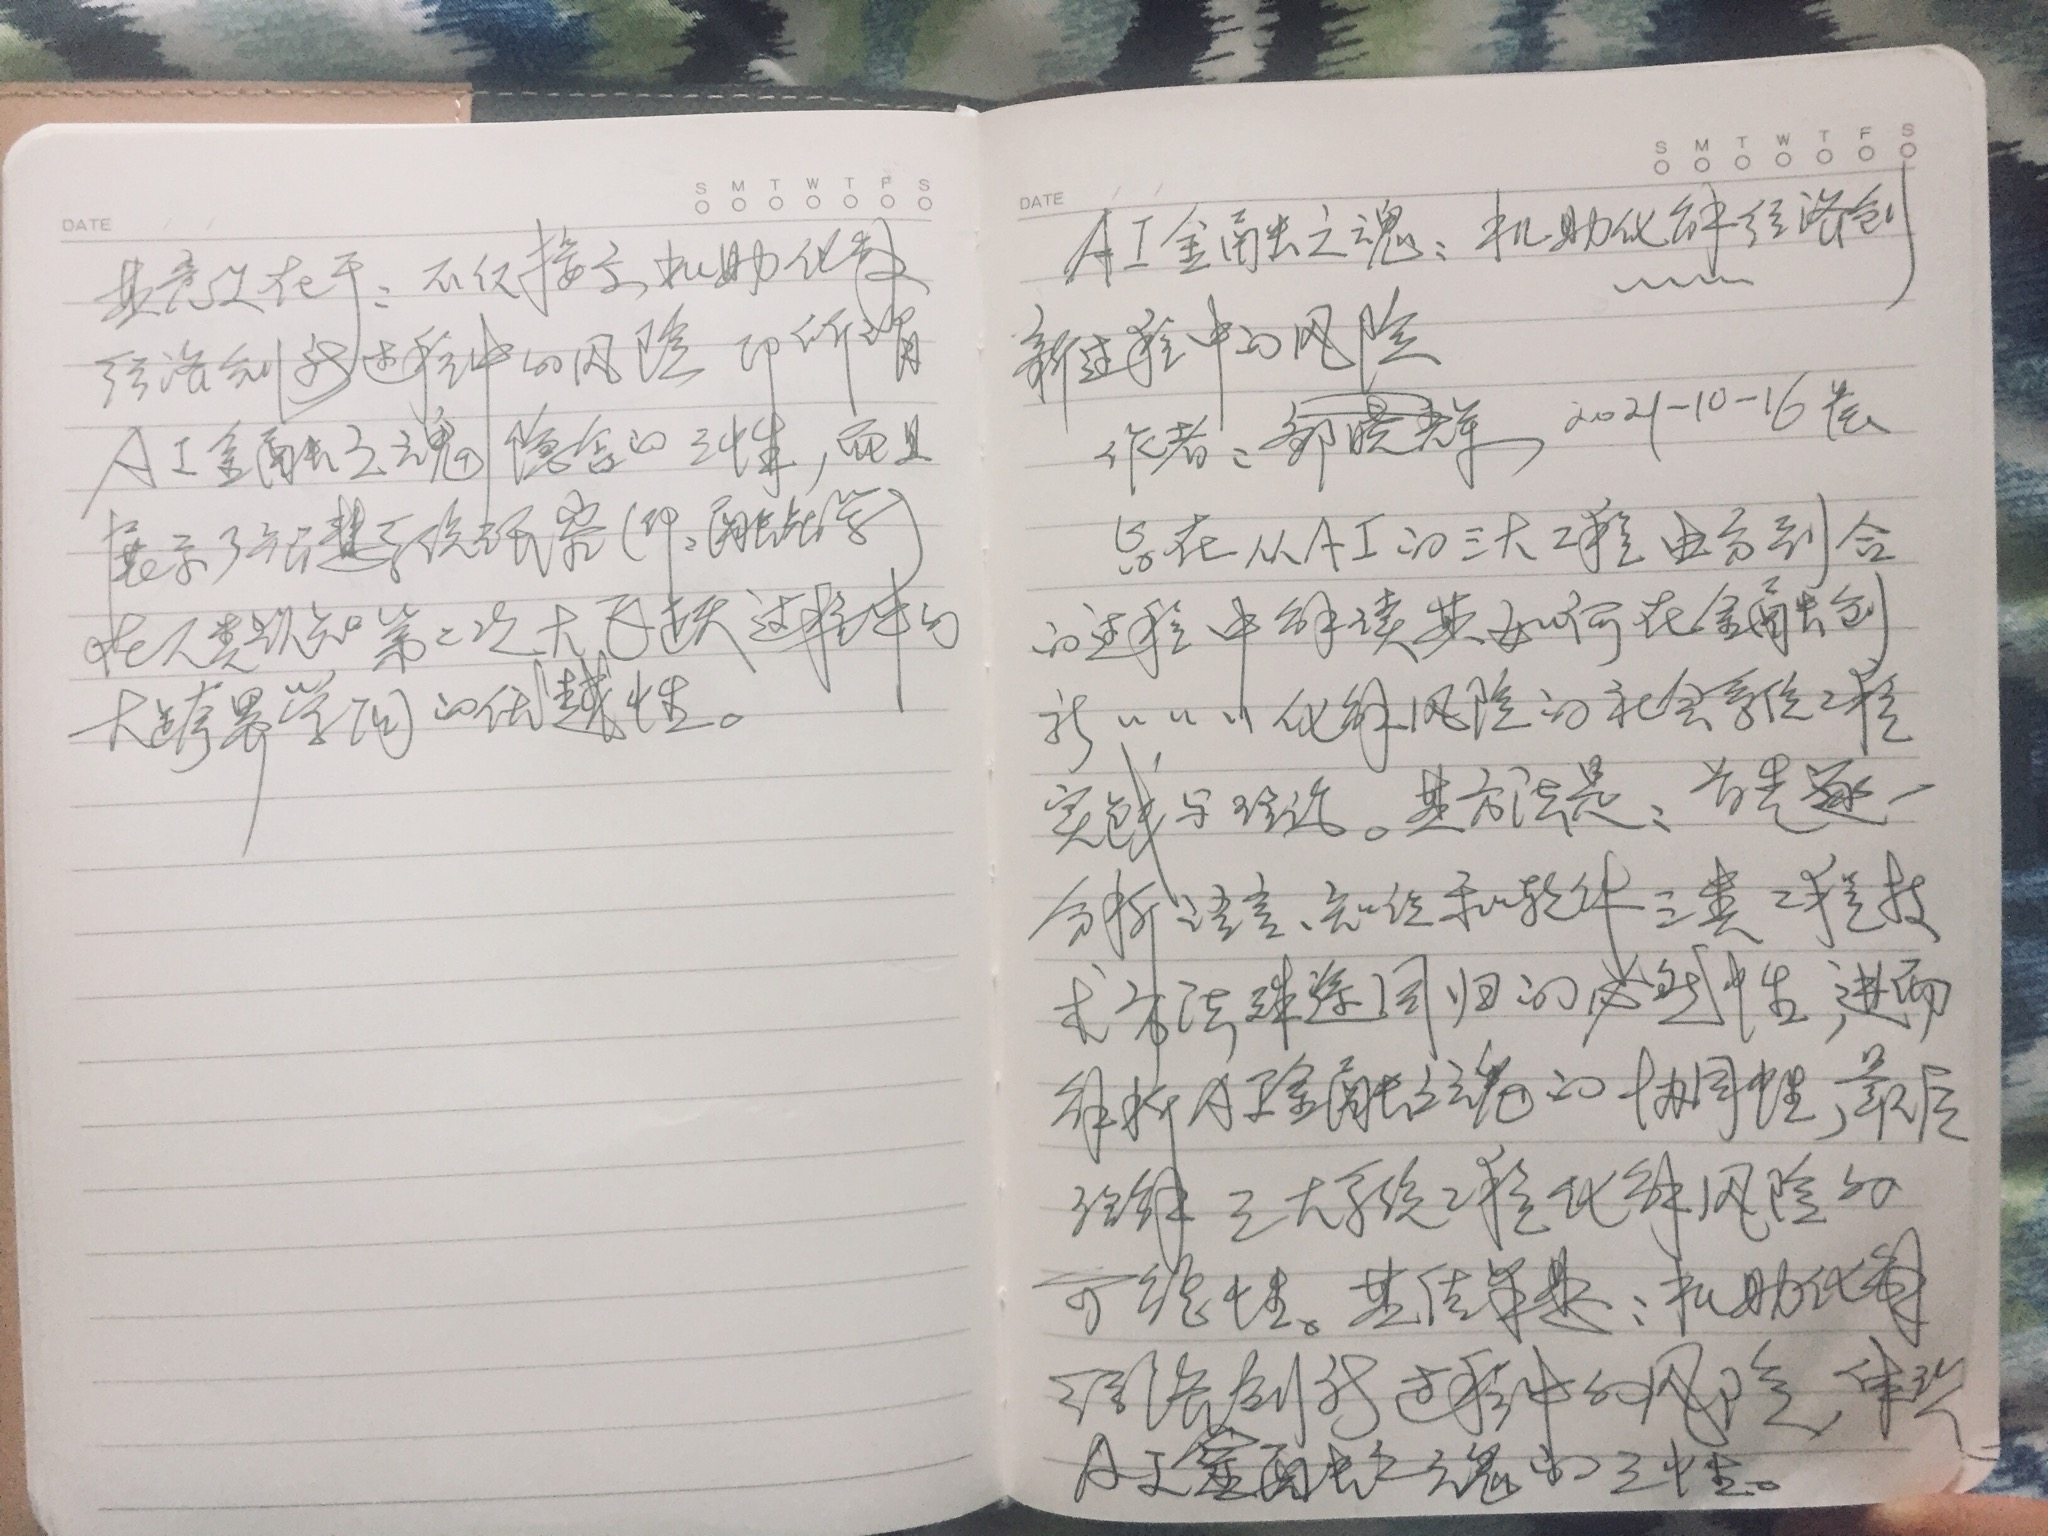 DATE / /
S M T W T F S
其意义在于:不仅揭示机助化解
经济创新过程中的风险即所谓
AI金融之魂隐含的三性,而且
展示了智慧系统研究(即:融智学)
在人类认知第二次大飞跃过程中的
大跨界学问的优越性。
DATE / /
S M T W T F S
AI金融之魂:机助化解经济创
新过程中的风险
作者:邹晓辉,2021-10-16
旨在从AI的三大工程由分到合
的过程中解读其如何在金融创
新〃〃〃化解风险的社会系统工程
实践与理论。其方法是:首先逐一
分析语言、知识和软件三类工程技
术方法殊途同归的必然性,进而
解析AI金融之魂的协同性,最后
诠解三大系统工程化解风险的
可能性。其结果是:机助化解
经济创新过程中的风险,体现
AI金融之魂的三性。